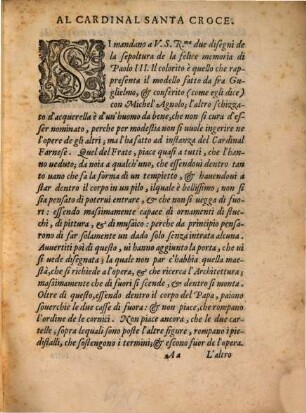 AL CARDINAL SANTA CROCE.
SI mandano a V. S. R.ma due disegni de
la sepoltura de la felice memoria di
Paolo III. Il colorito è quello che rap-
presenta il modello fatto da fra Gu-
glielmo, & conferito (come egli dice)
con Michel'Agnolo; l'altro schizzato
d'acquerella è d'un'huomo da bene, che non si cura d'es-
ser nominato, perche per modestia non si vuole ingerire ne
l'opere de gli altri; ma l'ha fatto ad instanza del Cardinal
Farnese. Quel del Frate, piace quasi a tutti, che l'han-
no veduto; da noia a qualch'uno, che essendovi dentro tan-
to vano che fa la forma di un tempietto, & havendovi a
star dentro il corpo in un pilo, ilquale è bellissimo; non si
sia pensato di potervi entrare, & che non si vegga di fuo-
ri: essendo massimamente capace di ornamenti di stuc-
chi, di pittura, & di musaico: perche da principio pensa-
rono di far solamente un dado solo senza intrata alcuna.
Avvertiti poi di questo, vi hanno aggiunto la porta, che vi
si vede disegnata; la quale non par c'habbia questa mae-
stà, che si richiede a l'opera, & che ricerca l'Architettura;
massimamente che di fuori si scende, & dentro si monta.
Oltre di questo, essendo dentro il corpo del Papa, paiono
souerchie le due casse di fuora; & non piace, che rompano
l'ordine de le cornici. Non piace ancora, che le due car-
telle, sopra lequali sono poste l'altre figure, rompano i pie-
distalli, che sostengono i termini; & escono fuor de l'opera.
Aa L'altro